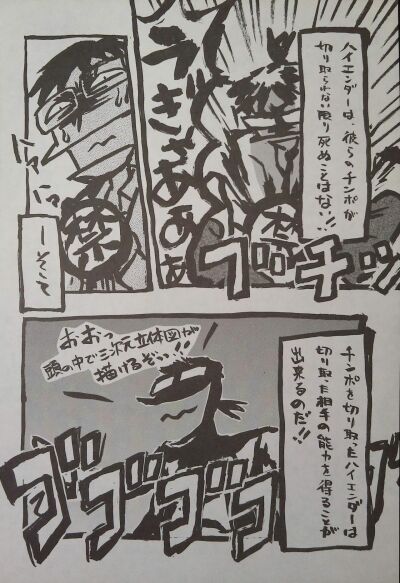 ハイエンダーは、彼らのチンポが
切り取られない限り死ぬことはない!!
禁
うぎゃあああ
禁
ーそして
チンポを切り取ったハイエンダーは
切り取った相手の能力を得ることが
出来るのだ!!
おおっ
頭の中で三次元立体図が
描けるぞぃ…!!
ゴゴゴゴ